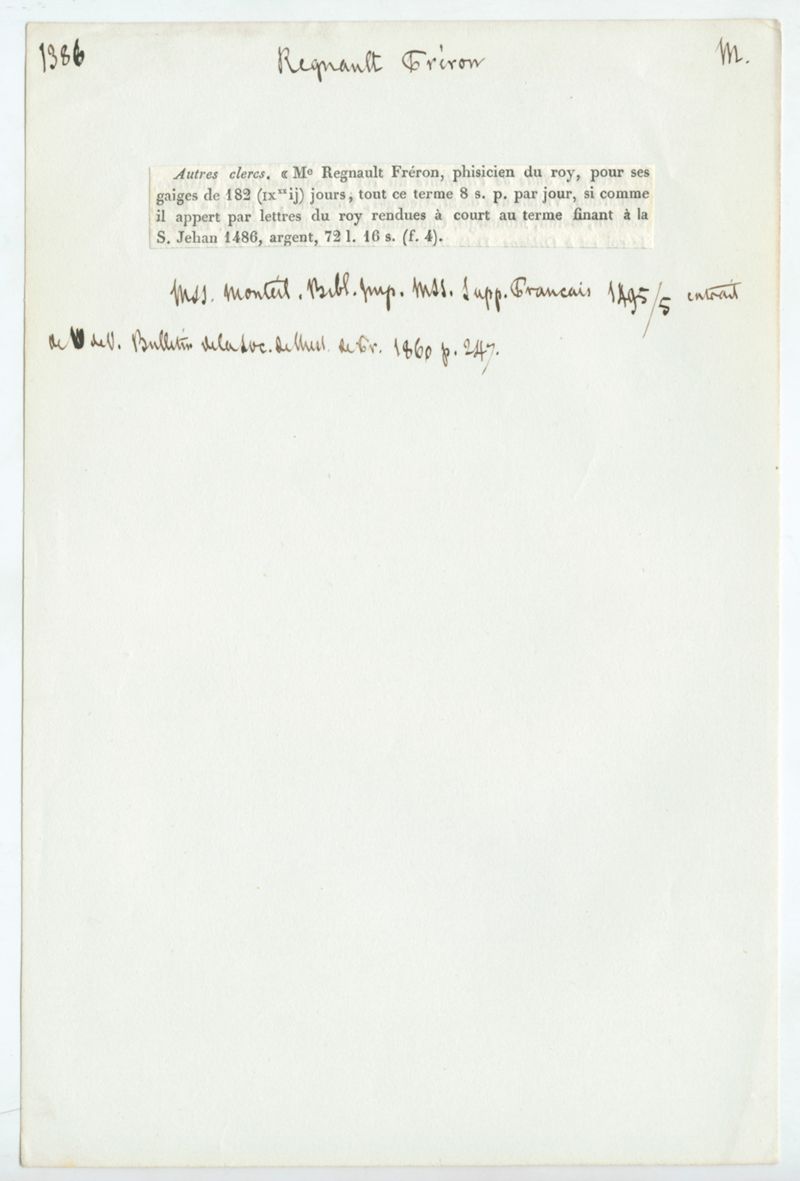 1386 Regnault Fréron M.
Autres clercs. « Me Regnault Fréron, phisicien du roy, pour ses
gaiges de 182 (ixxxij) jours, tout ce terme 8 s. p. par jour, si comme
il appert par lettres du roy rendues à court au terme finant à la
S. Jehan 1486, argent, 72 l. 16 s. (f. 4).
Mss. Monteil. Bibl. Imp. Mss. Supp. Francais 1495/5 extrait
de V de V. Bulletin de la Soc. de l'hist. de Fr. 1860 p. 247.